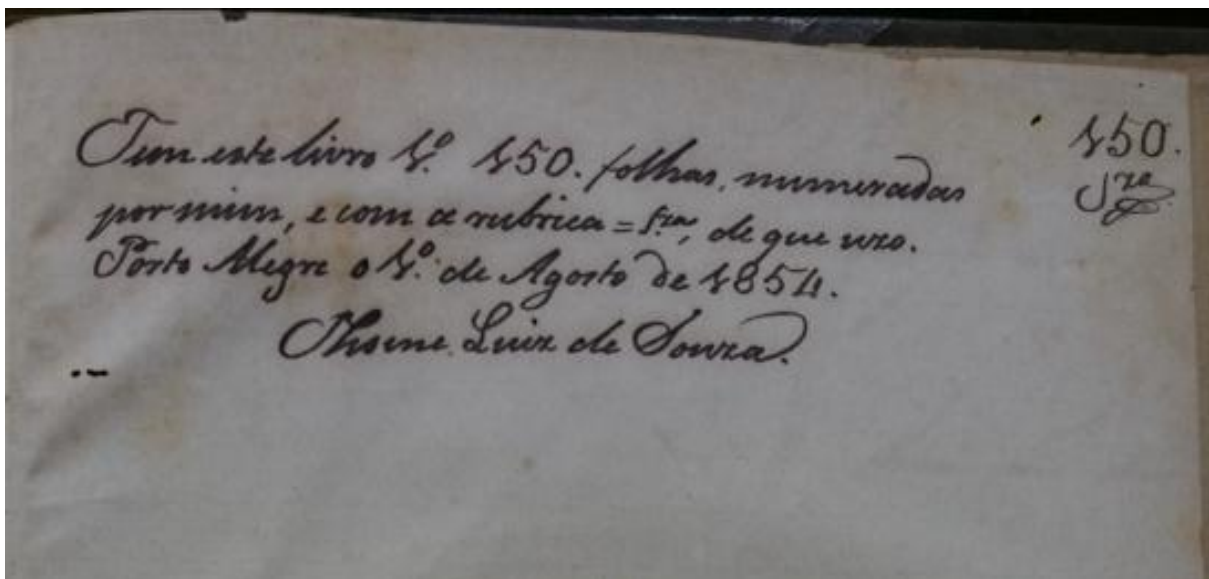 Tem este livro 1º 150. folhas, numeradas
por mim, e com a rubrica = Sza, de que uzo.
Porto Alegre o 1º de Agosto de 1854.
Thome Luiz de Souza.
150.
Sza